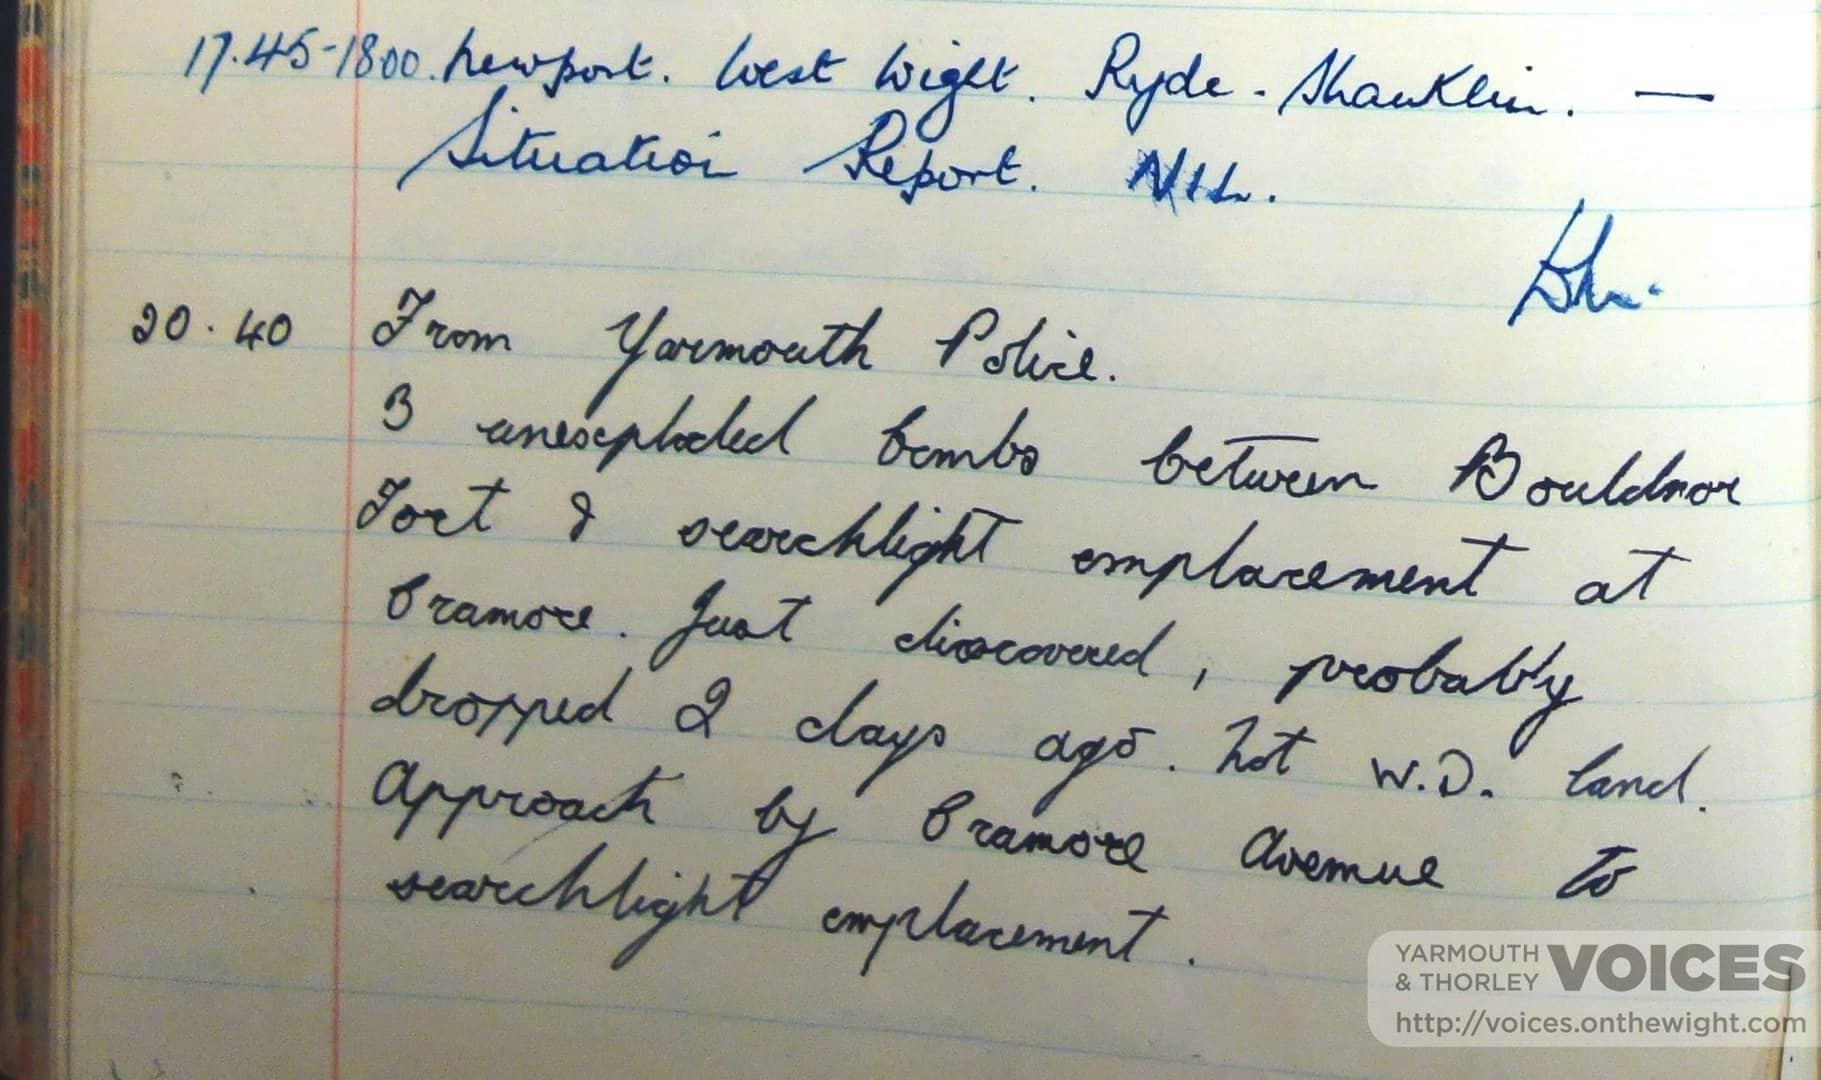 17.45-1800. Newport. West Wight. Ryde - Shanklin. —
Situation Report. NIL.
20.40 From Yarmouth Police.
3 unexploded bombs between Bouldnor
Fort & searchlight emplacement at
Cramore. Just discovered, probably
dropped 2 days ago. Not W.D. land.
Approach by Cramore Avenue to
searchlight emplacement.
YARMOUTH & THORLEY VOICES
http://voices.onthewight.com